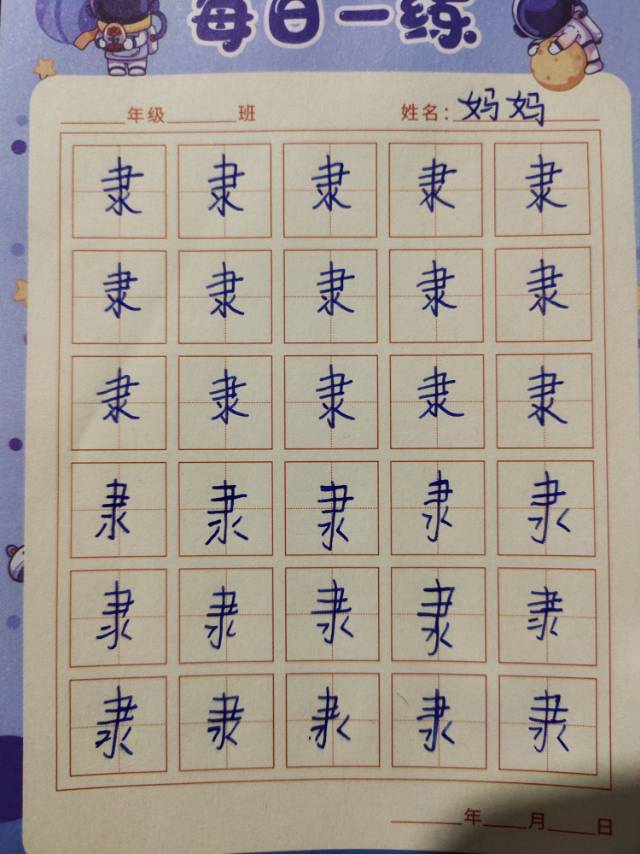 每日一练
年级 班 姓名：妈妈
隶 隶 隶 隶 隶
隶 隶 隶 隶 隶
隶 隶 隶 隶 隶
隶 隶 隶 隶 隶
隶 隶 隶 隶 隶
隶 隶 隶 隶 隶
年 月 日